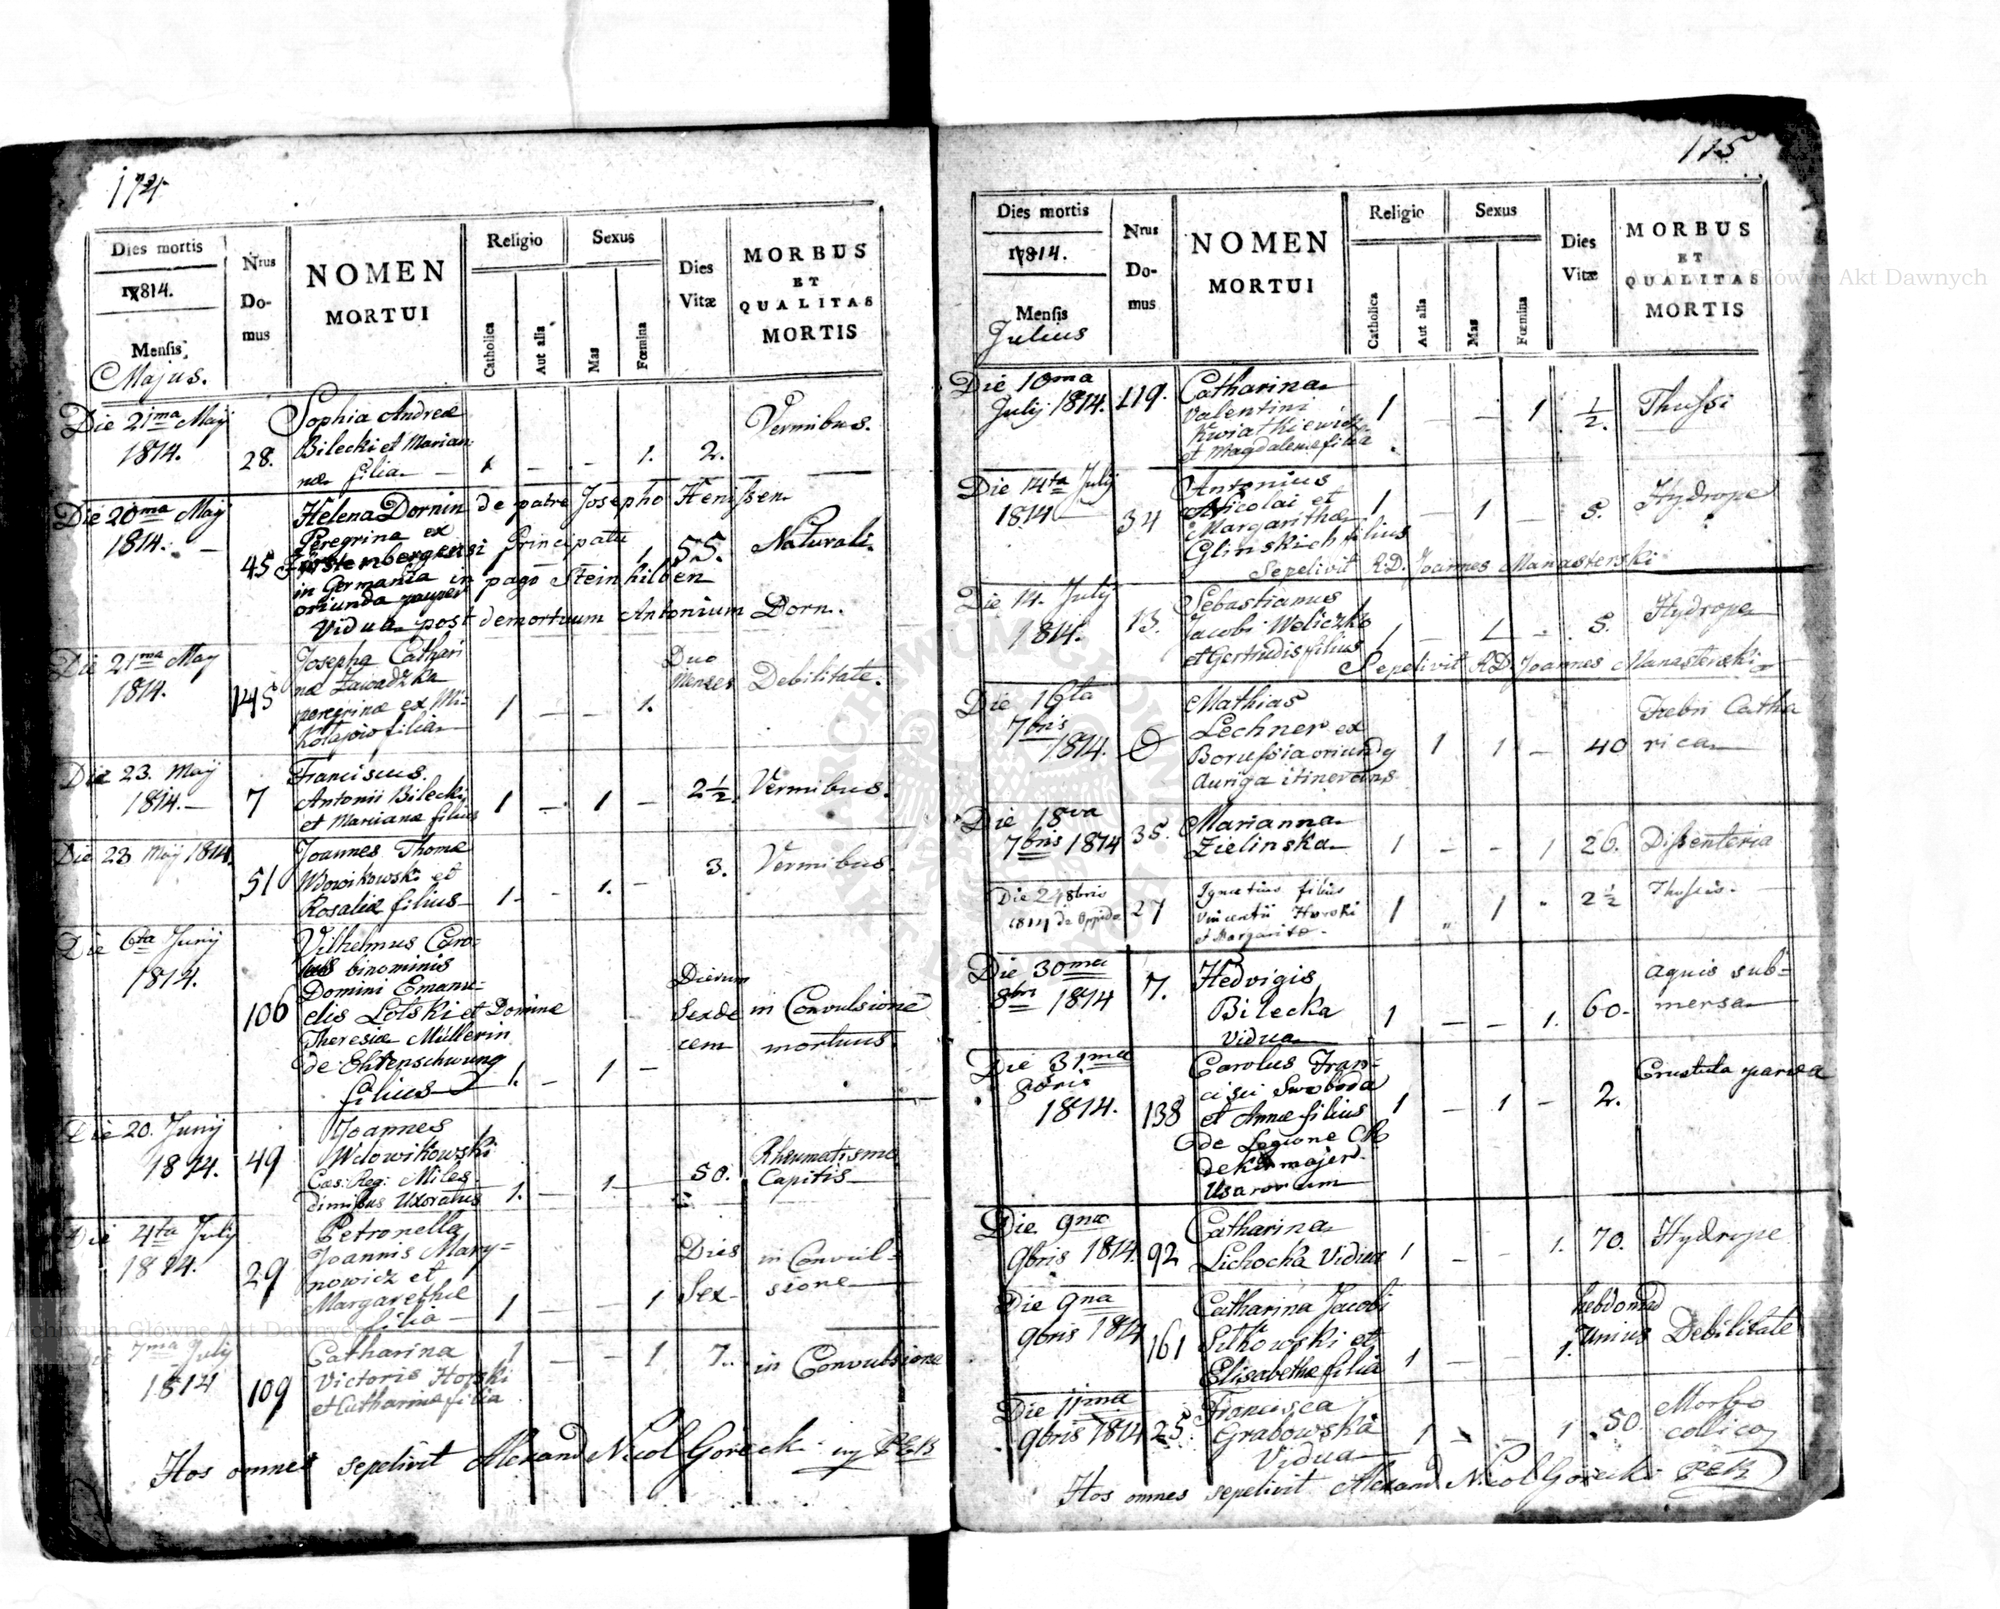 174
Dies mortis
1814.
Mensis
Majus.
Nrus
Do-
mus
NOMEN
MORTUI
Religio
Catholica
Aut alia
Sexus
Mas
Fœmina
Dies
Vitæ
MORBUS
ET
QUALITAS
MORTIS
Die 21ma Maÿ
1814.
28.
Sophia Andreæ
Bilecki et Marian
næ filia
1 - - 1. 2.
Vermibus.
Die 20ma Maÿ
1814.
45
Helena Dornin de patre Josepho Henissen
Peregrina ex
Fürstenbergensi Principatu
in Germania in pago Steinhilben
oriunda pauper
Vidua post demortuum Antonium Dorn.
1. 55.
Naturali.
Die 21ma May
1814.
145
Josepha Cathari
næ Zawadzka
peregrinæ ex Mi-
kołajow filia
1 - - 1.
Duo
Menses
Debilitate.
Die 23. Maÿ
1814.
7
Franciscus.
Antonii Bilecki
et Marianæ filius
1 - 1 -
2 1/2.
Vermibus.
Die 23 Maÿ 1814.
51
Joannes Thomæ
Wdowikowski et
Rosaliæ filius
1 - 1. -
3.
Vermibus
Die 6ta Junÿ
1814.
106
Vilhelmus Caro-
lus binominis
Domini Emanu-
elis Lotski et Dominæ
Theresiæ Müllerin
de Ehrenschwung
filius
1. - 1 -
Dierum
Sexde
cem
in Convulsione
mortuus.
Die 20. Junÿ
1814.
49
Joannes
Wdowikowski
Cæs: Reg: Miles
dimissus Uxoratus
1. - 1
50.
Rheumatismo
Capitis
Die 4ta July
1814.
29
Petronella
Joannis Mary-
nowicz et
Margarethæ
filia
1 - - 1
Dies
Sex
in Convul-
sione
Die 7ma July
1814
109
Catharina
Victoris Horski
et Catharinæ filia
1 - - 1
7.
in Convulsione
Hos omnes sepelivit Alexand Nicol Gorecki
115
Dies mortis
1814.
Mensis
Julius
Nrus
Do-
mus
NOMEN
MORTUI
Religio
Catholica
Aut alia
Sexus
Mas
Fœmina
Dies
Vitæ
MORBUS
ET
QUALITAS
MORTIS
Die 10ma
July 1814.
119.
Catharina
Valentini
Kwiatkiewicz
et Magdalenæ filia
1 - - 1
1/2.
Thussi
Die 14ta July
1814
34
Antonius
Nicolai et
Margarithæ
Glinskich filius
1 - 1 -
5.
Hydrope
Sepelivit R.D. Joannes Manasterski
Die 14. July
1814.
13.
Sebastianus
Jacobi Weliczko
et Gertrudis filius
1 - 1 -
5.
Hydrope
Sepelivit R.D. Joannes Manasterski
Die 16ta
7bris
1814.
Mathias
Lechner ex
Borussia oriundg
Auriga itinerans
1 1 -
40
Febri Catha
rica
Die 18va
7bris 1814
35.
Marianna
Zielinska
1 - - 1
26.
Dissenteria
Die 24 8bris
1814 de Oppido
27
Ignatius filius
Vincentii Horski
et Margaritæ
1 " 1 "
2 1/2
Thussis.
Die 30ma
8bri 1814
7.
Hedvigis
Bilecka
Vidua
1 - - 1.
60.
aquis sub-
mersa
Die 31ma
8bris
1814.
138
Carolus Fran-
cisci Swoboda
et Annæ filius
de Legione CR
Usarorum
1 - 1 -
2.
Crustula parva
Die 9na
9bris 1814.
92
Catharina
Lichocka Vidua
1 - - 1.
70.
Hydrope
Die 9na
9bris 1814
161
Catharina Jacobi
Sitkowski et
Elisabethæ filia
1 - - 1.
hebdomad
unius
Debilitate
Die 11ma
9bris 1814
25.
Francisca
Grabowska
Vidua
1 - - 1
50.
Morbo
collico
Hos omnes sepelivit Alexand Nicol Gorecki
Archiwum Główne Akt Dawnych